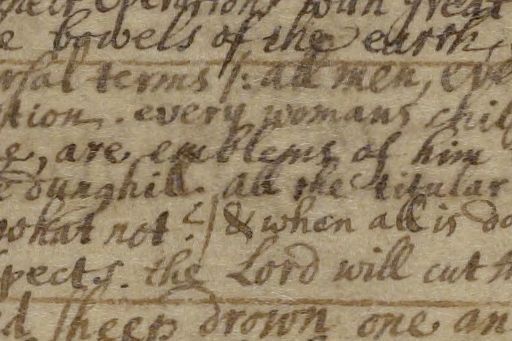 Operations with great
e bowels of the earth,
rsal terms /: all men, eve
tion. every womans chil
e, are emblems of him
dunghill all the titular
what not? & when all is do
spects. the Lord will cut
d sheep drown one an